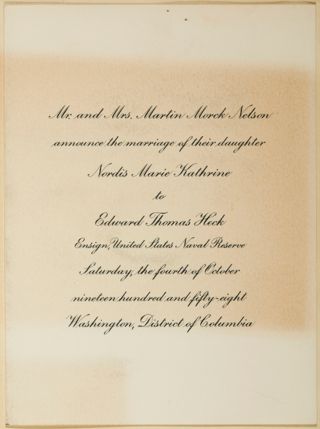 Mr. and Mrs. Martin Morck Nelson
announce the marriage of their daughter
Nordis Marie Kathrine
to
Edward Thomas Heck
Ensign, United States Naval Reserve
Saturday, the fourth of October
nineteen hundred and fifty-eight
Washington, District of Columbia